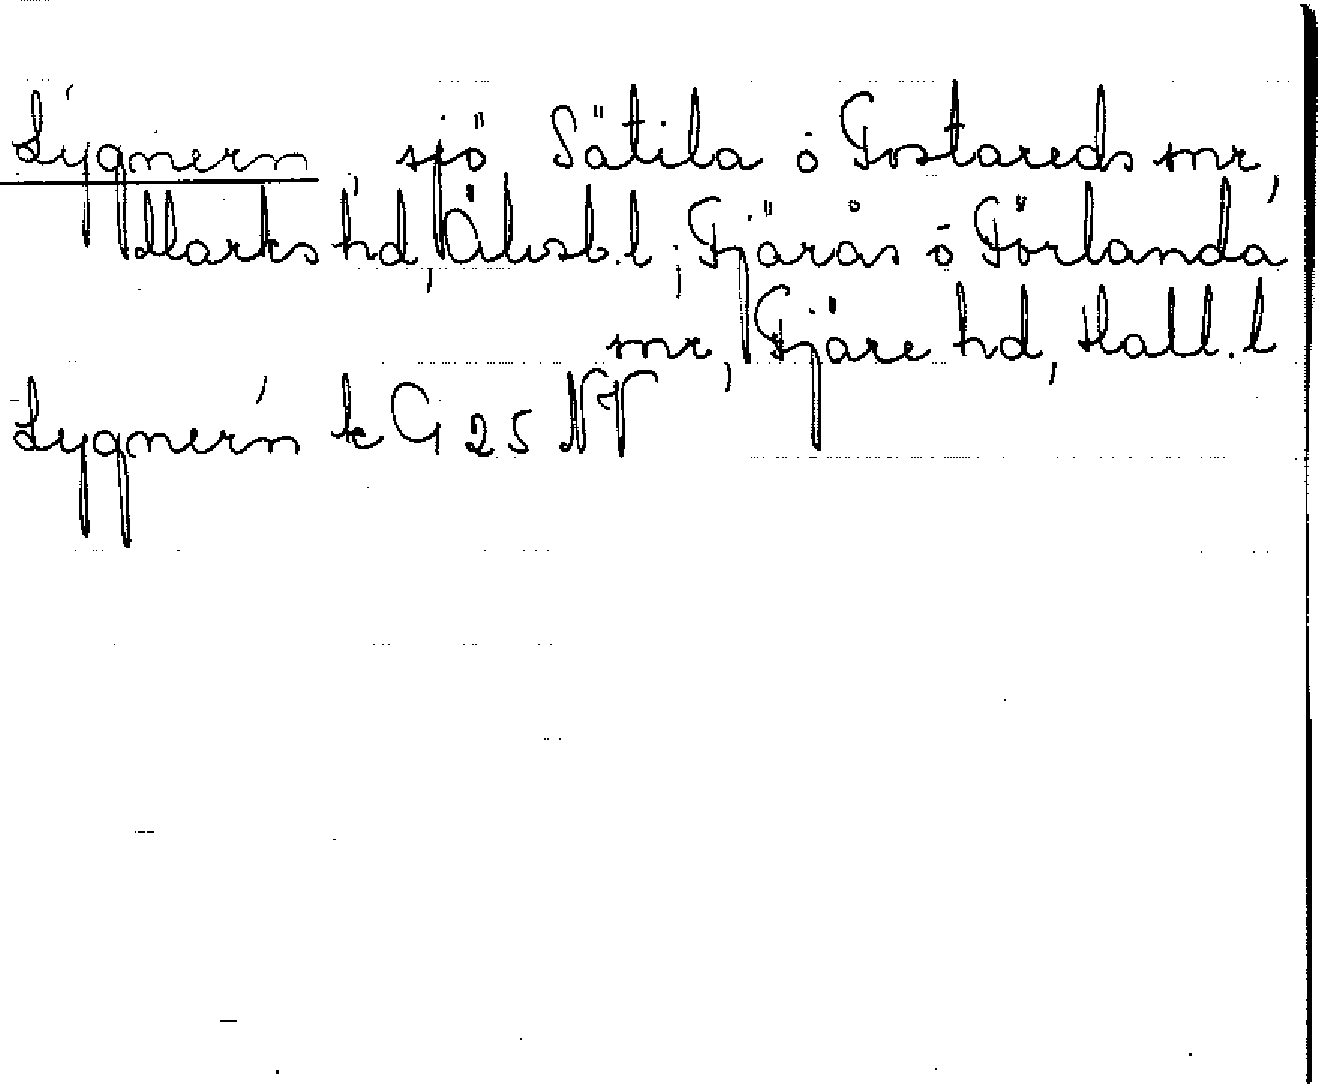 Lygnern sjö Sätila o Tostareds snr,
Marks hd, Älvsb. l; Fjärås o Förlanda
snr, Fjäre hd, Hall. l
Lygnern k G 25 NV